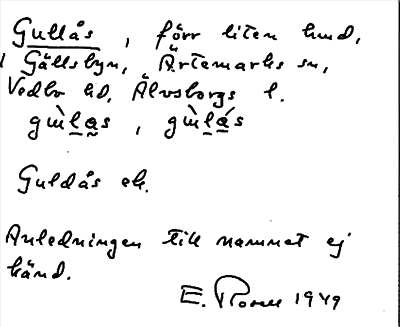 Gullås, förr liten lund,
i Gällsbyn, Ärtemarks sn,
Vedbo hd, Älvsborgs l.
gùḷas, gùḷás
Guldås ek.
Anledningen till namnet ej
känd.
E. Rosell 1949